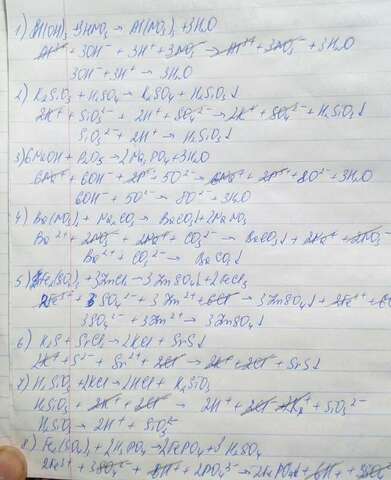 1) Al(OH)3 + 3HNO3 → Al(NO3)3 + 3H2O
Al3+ + 3OH- + 3H+ + 3NO3- → Al3+ + 3NO3- + 3H2O
3OH- + 3H+ → 3H2O
2) K2SiO3 + H2SO4 → K2SO4 + H2SiO3↓
2K+ + SiO3 2- + 2H+ + SO4 2- → 2K+ + SO4 2- + H2SiO3↓
SiO3 2- + 2H+ → H2SiO3↓
3) 6NaOH + P2O5 → 2Na3PO4 + 3H2O
6Na+ + 6OH- + 2P5+ + 5O2- → 6Na+ + 2P5+ + 8O2- + 3H2O
6OH- + 5O2- → 8O2- + 3H2O
4) Ba(NO3)2 + Na2CO3 → BaCO3↓ + 2NaNO3
Ba2+ + 2NO3- + 2Na+ + CO3 2- → BaCO3↓ + 2Na+ + 2NO3-
Ba2+ + CO3 2- → BaCO3↓
5) Fe2(SO4)3 + 3ZnCl2 → 3ZnSO4↓ + 2FeCl3
2Fe3+ + 3SO4 2- + 3Zn2+ + 6Cl- → 3ZnSO4↓ + 2Fe3+ + 6C
3SO4 2- + 3Zn2+ → 3ZnSO4↓
6) K2S + SrCl2 → 2KCl + SrS↓
2K+ + S2- + Sr2+ + 2Cl- → 2K+ + 2Cl- + SrS↓
7) H2SiO3 + 2KCl → 2HCl + K2SiO3
H2SiO3 + 2K+ + 2Cl- → 2H+ + 2Cl- + 2K+ + SiO3 2-
H2SiO3 → 2H+ + SiO3 2-
8) Fe2(SO4)3 + 2H3PO4 → 2FePO4 + 3H2SO4
2Fe3+ + 3SO4 2- + 6H+ + 2PO4 3- → 2FePO4↓ + 6H+ +